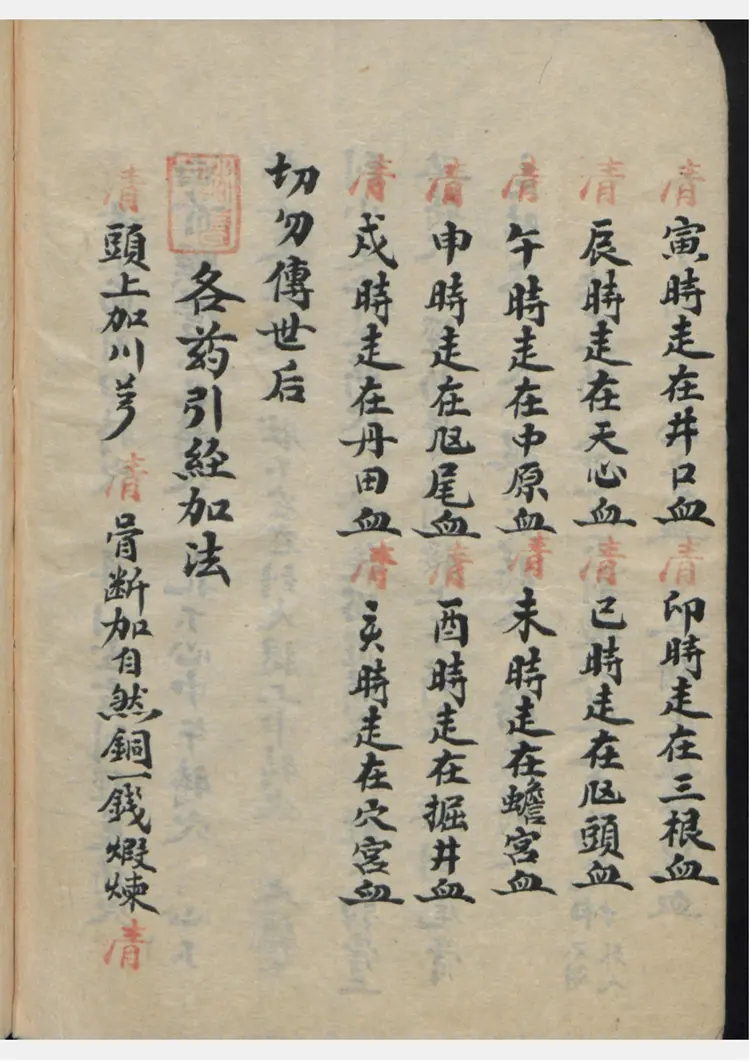 清寅時走在井口血清卯時走在三根血
清辰時走在天心血清巳時走在凤頭血
清午時走在中原血清未時走在蟾宮血
清申時走在凤尾血清酉時走在掘井血
清戌時走在丹田血清亥時走在穴宮血
切勿傳世后
各药引經加法
清頭上加川芎清骨断加自然銅一錢煅煉清